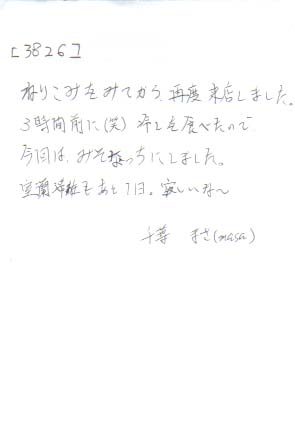 [3826]
ねりこみをみてから、再度来店しました。
3時間前に(笑) 冷しを食べたので
今回は、みそなっちにしました。
室蘭 もあと1日。寂しいな〜
千葉 まさ(masa)